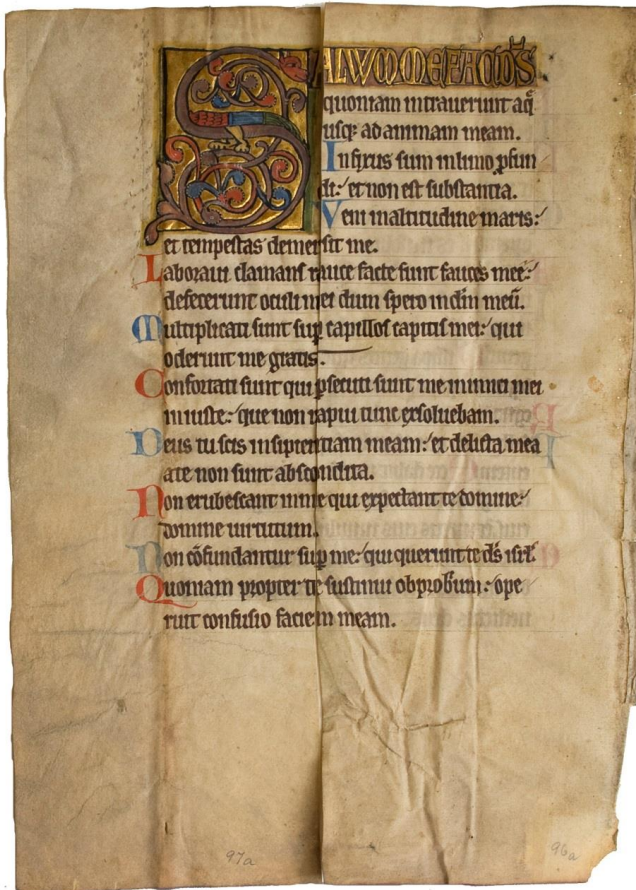 SALVUM ME FAC D̄S
quoniam intrauerunt aq̄
usq; ad animam meam.
Infixus sum in limo ꝓfun
di: et non est substantia.
Veni in altitudinē maris:
et tempestas demersit me.
Laboraui clamans rauce facte sunt fauces mee:
defecerunt oculi mei dum spero in dm̄ meū.
Multiplicati sunt suꝑ capillos capitis mei: qui
oderunt me gratis.
Confortati sunt qui ꝑsecuti sunt me inimici mei
iniuste: que non rapui tunc exsoluebam.
Deus tu scis insipientiam meam: et delicta mea
a te non sunt abscondita.
Non erubescant in me qui expectant te domine:
domine uirtutum.
Non cōfundantur suꝑ me: qui querunt te ds̄ isrl̄.
Quoniam propter te sustinui obprobrium: ope
ruit confusio faciem meam.
97a
96a